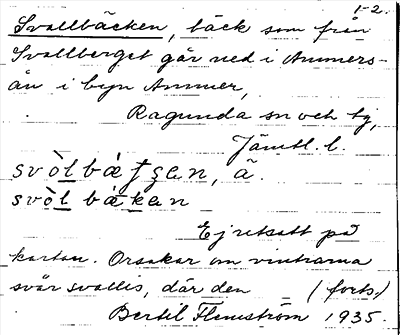 1-2.
Svallbäcken, bäck som från
Svallberget går ned i Ammers-
ån i byn Ammer,
Ragunda sn och tg,
Jämtl. l.
svòlbæ̀tʃen, ä.
svòl bækan
Ej utsatt på
kartan. Orsakar om vintrarna
svår svallis, där den (forts.)
Bertil Flemström 1935.